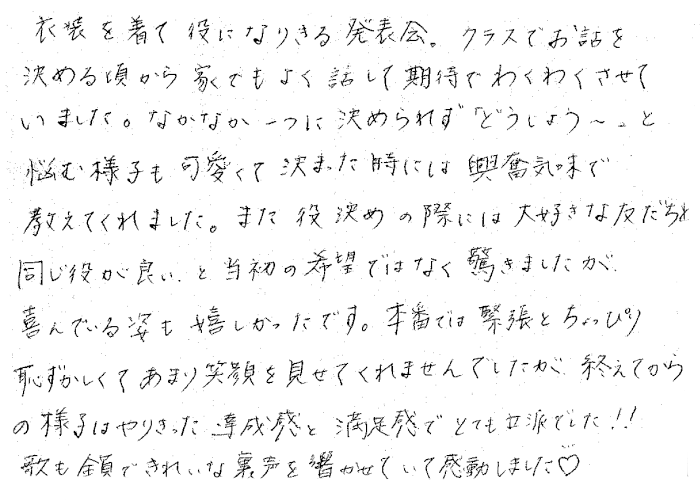 衣装を着て役になりきる発表会。クラスでお話を
決める頃から家でもよく話して期待でわくわくさせて
いました。なかなか一つに決められず「どうしよう〜」と
悩む様子も可愛くて決まった時には興奮気味で
教えてくれました。また役決めの際には大好きな友だちと
同じ役が良いと当初の希望ではなく驚きましたが
喜んでいる姿も嬉しかったです。本番では緊張とちょっぴり
恥ずかしくてあまり笑顔を見せてくれませんでしたが終えてから
の様子はやりきった達成感と満足感でとても立派でした!!
歌も全員できれいな裏声を響かせていて感動しました♡